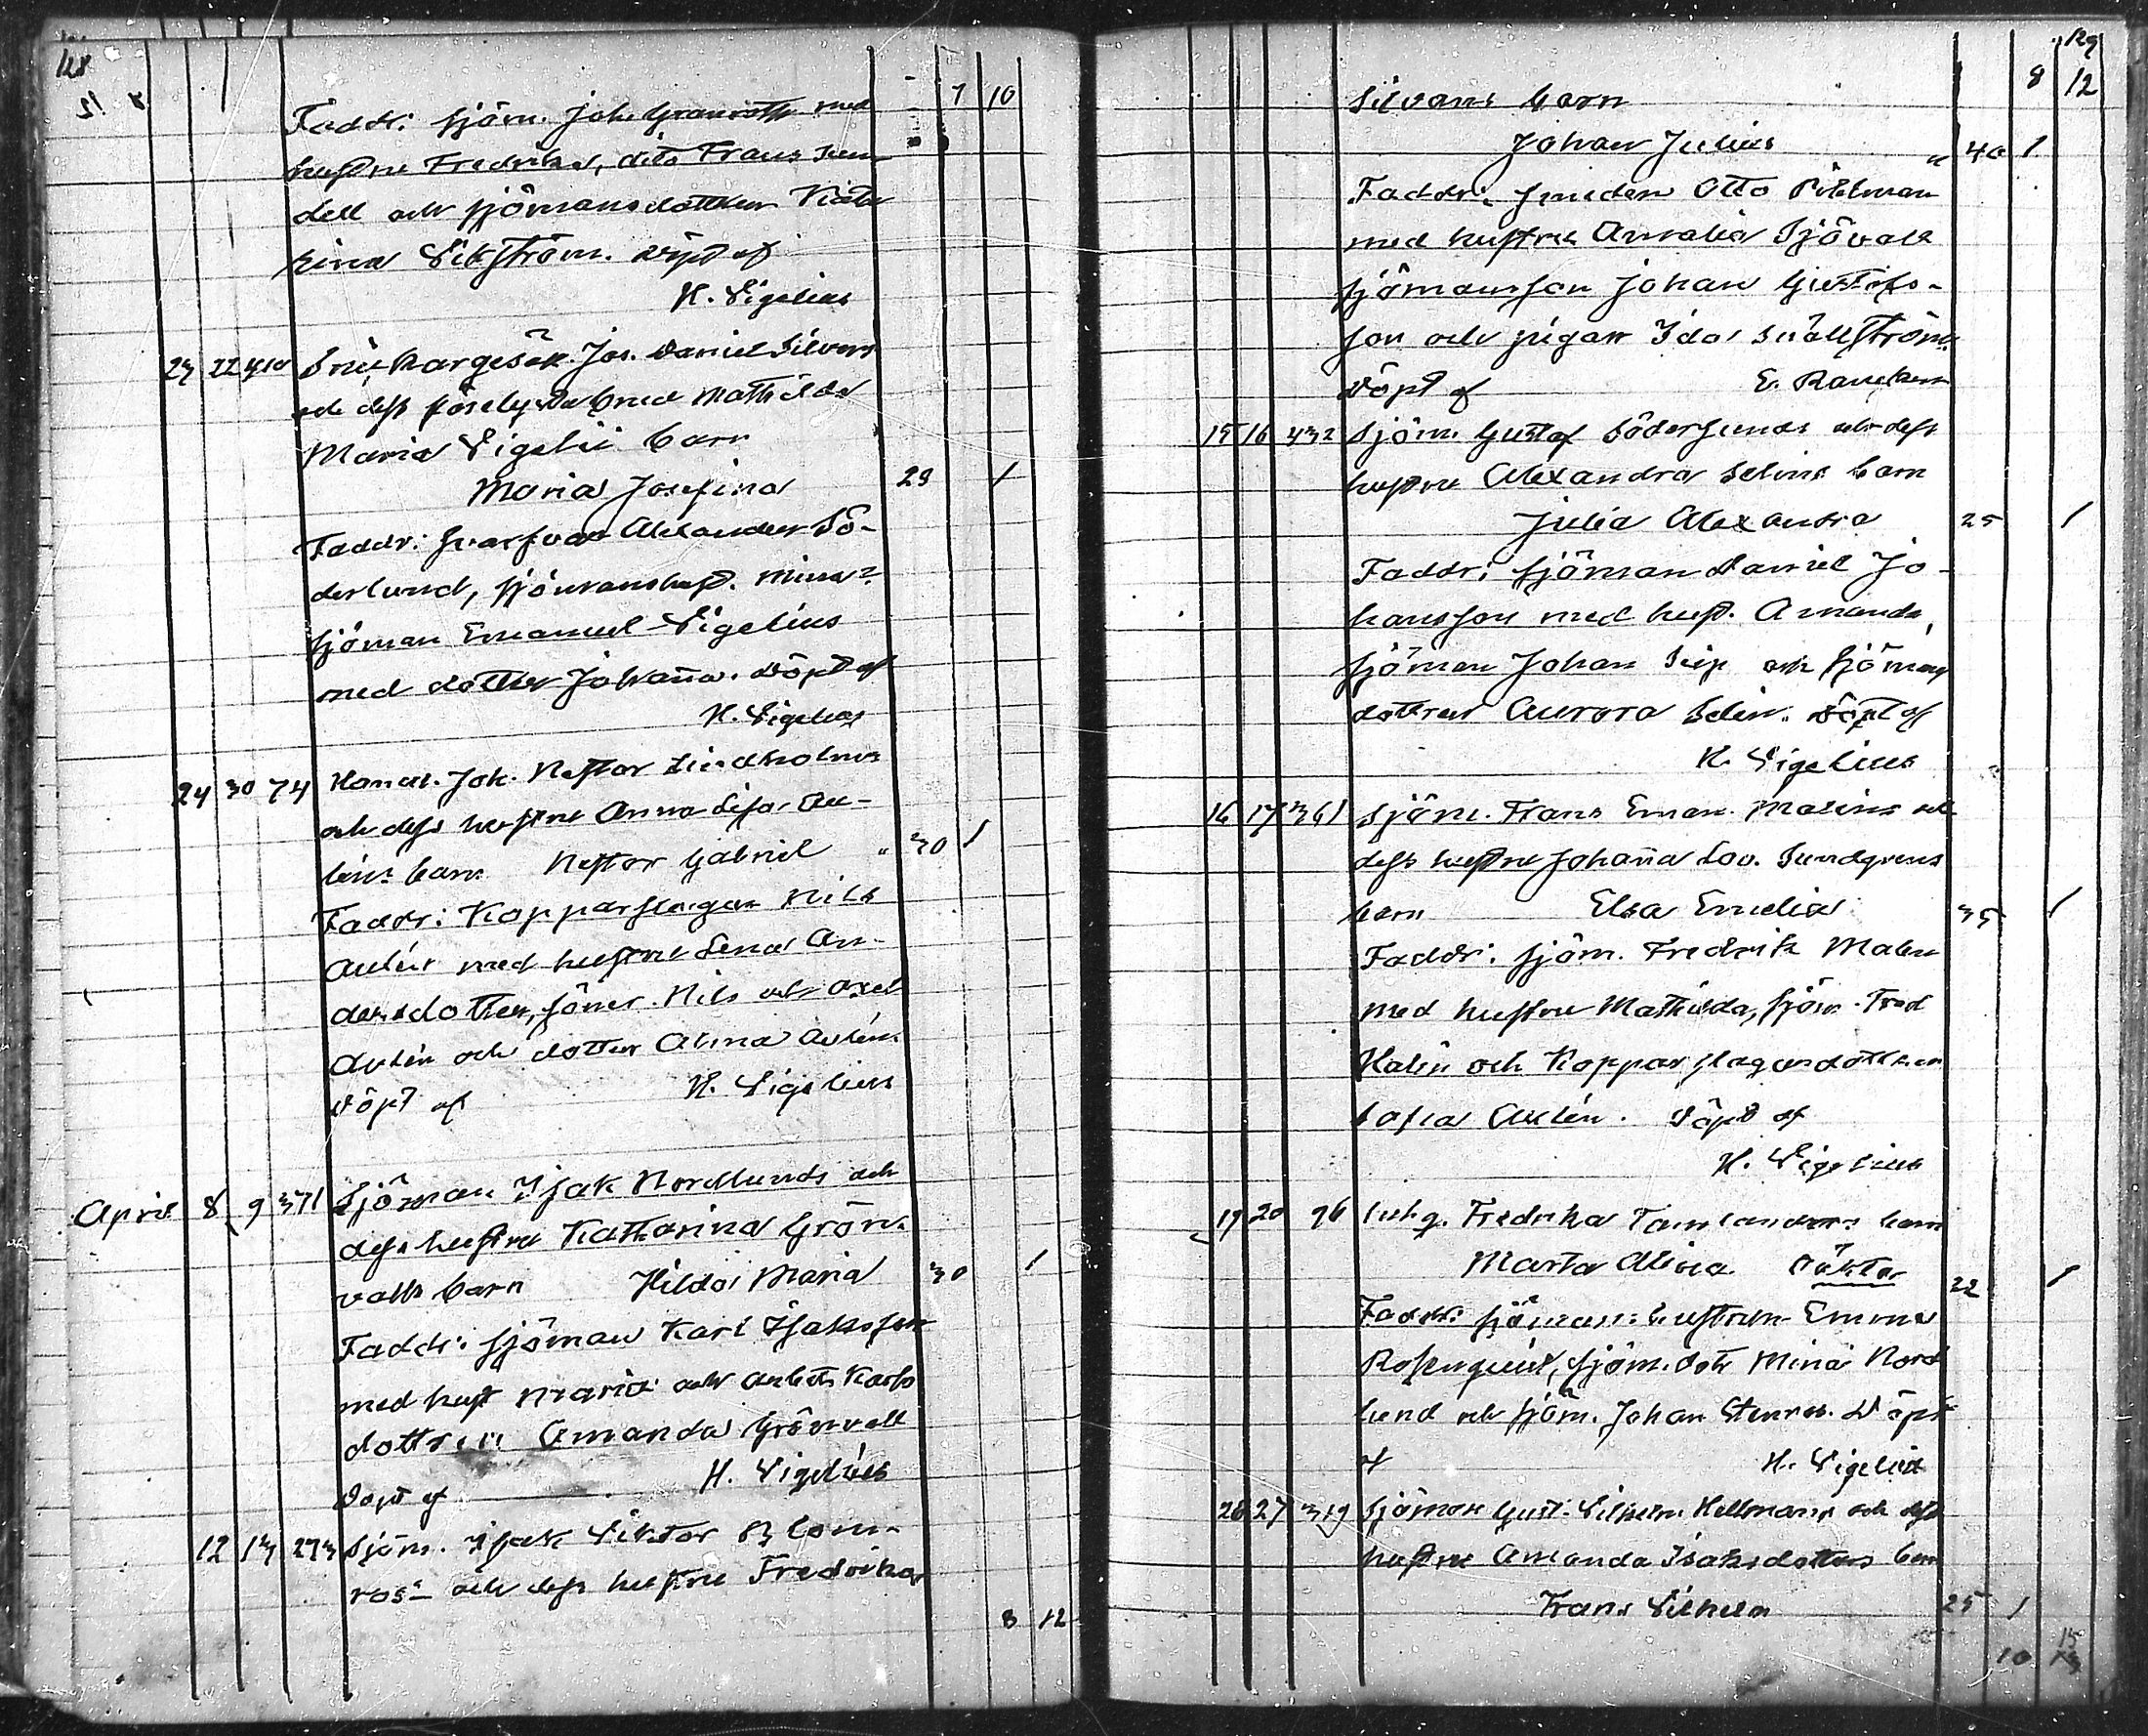 128
7 10
Faddr: sjöm. Joh. Granroth med
hustru Fredrika, dito Frans Sun
dell och sjömansdottren Kata
rina Vikström. Döpt af
H. Vigelius
23 22 Joh. Daniel Silvers
och dess Mathilda
Maria Vigelii barn
Maria Josefina 29 1
Faddr: Alexander Sö-
derlund, sjömanshust. Mina
sjöman Emanuel Vigelius
med dotter Johanna. Döpt af
H. Vigelius
24 30 74 Joh. Nestor Lindholms
och dess hustru Anna Lisa Au-
lins barn Nestor Gabriel " 30 1
Faddr: Kopparslagar Nils
Aulin med hustru Lena An-
dersdotter, söner Nils och Axel
Aulin och dotter Alina Aulin.
Döpt af H. Vigelius
April 8 9 371 Sjöman Isak Nordlunds och
dess hustru Katharina Grön-
valls barn Hilda Maria 30 1
Faddr: sjöman Karl Isaksson
med hust Maria och arbets Karls
dottren Amanda Grönvall
Döpt af H. Vigelius
12 13 273 Sjöm. Isak Viktor Blom-
ros' och dess hustru Fredrika
8 12
129
8 12
Silvans barn
Johan Julius " 40 1
Faddr: smeden Otto Pihlman
med hustru Amalia Sjövall
sjömanson Johan Gustafs-
son och pigan Ida Snällström
Döpt af E. Rancken
15 16 432 Sjöm. Gustaf Söderlunds och dess
hustru Alexandra Selins barn
Julia Alexandra 25 1
Faddr: sjöman Daniel Jo-
hansson med hust. Amanda,
sjöman Johan och sjömans
dottren Aurora Selin. Döpt af
H. Vigelius
16 17 361 Sjöm. Frans Eman. Malins och
dess hustru Johanna Lov. Sundqvens
barn Elsa Emelia 35 1
Faddr: sjöm. Fredrik Malin
med hustru Mathilda, sjöm. Fred
Malin och Kopparslagardottren
Sofia Aulin. Döpt af
H. Vigelius
19 20 76 Fredrika Tamlanders barn
Marta Alina 22 1
Faddr: sjömans hustrun Emma
Rosenqvist, sjöm. dotr Mina Nord
lund och sjöm. Johan Stenros. Döpt
af H. Vigelius
26 27 319 Sjöman Gust. Vilhelm Hellmans och dess
hustru Amanda Isaksdotters barn
Frans Vilhelm 25 1
10 15